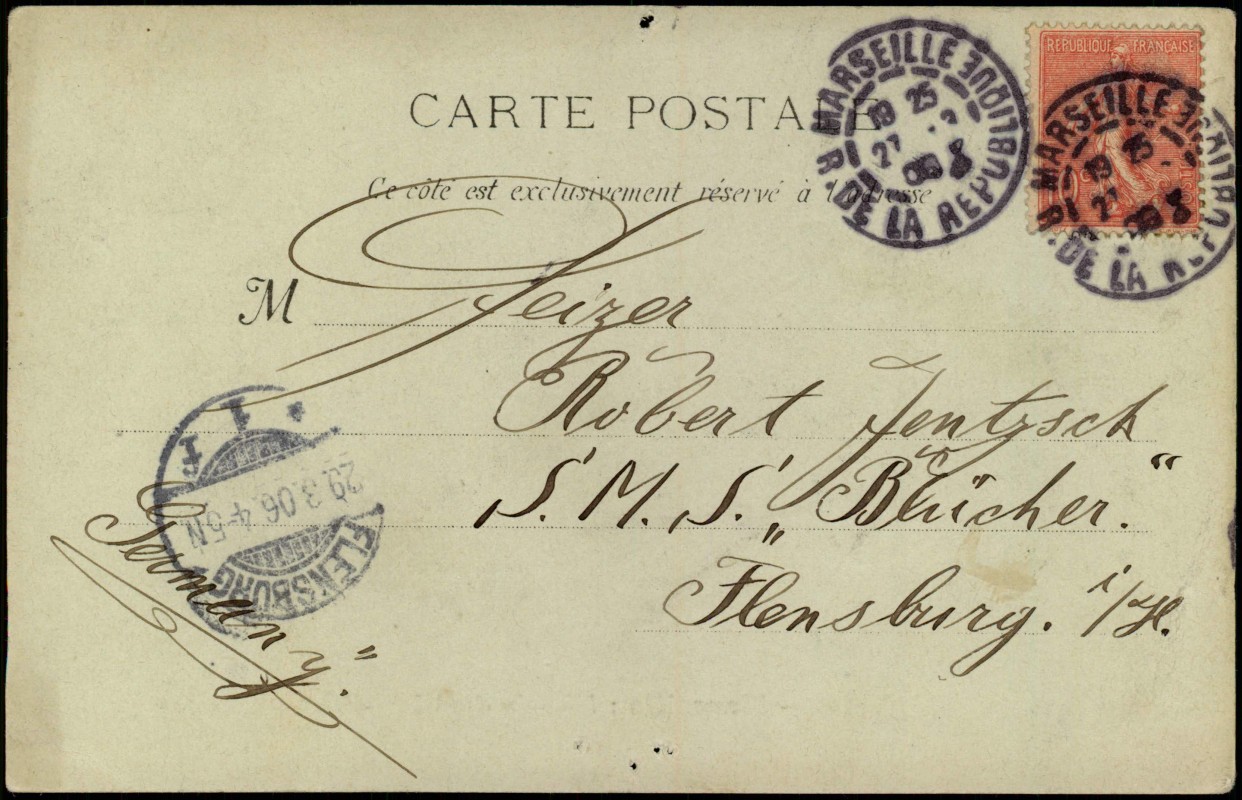 CARTE POSTALE
Ce côté est exclusivement réservé à l'adresse
REPUBLIQUE FRANÇAISE
MARSEILLE
R. DE LA REPUBLIQUE
19 25
27
MARSEILLE
R. DE LA REPUBLIQUE
19 25
27
M Heizer
Robert Jentzsch
S. M. S. „Blücher.“
Flensburg. i/H.
Germany."
FLENSBURG
29.3.06.4-5N
1 F